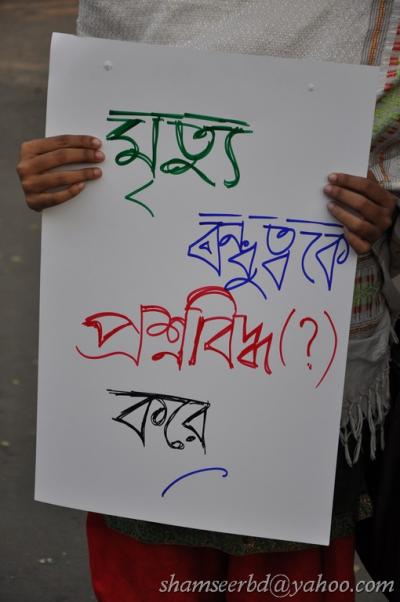 মৃত্যু
বন্ধুত্বকে
প্রশ্নবিদ্ধ(?)
করে
shamseerbd@yahoo.com